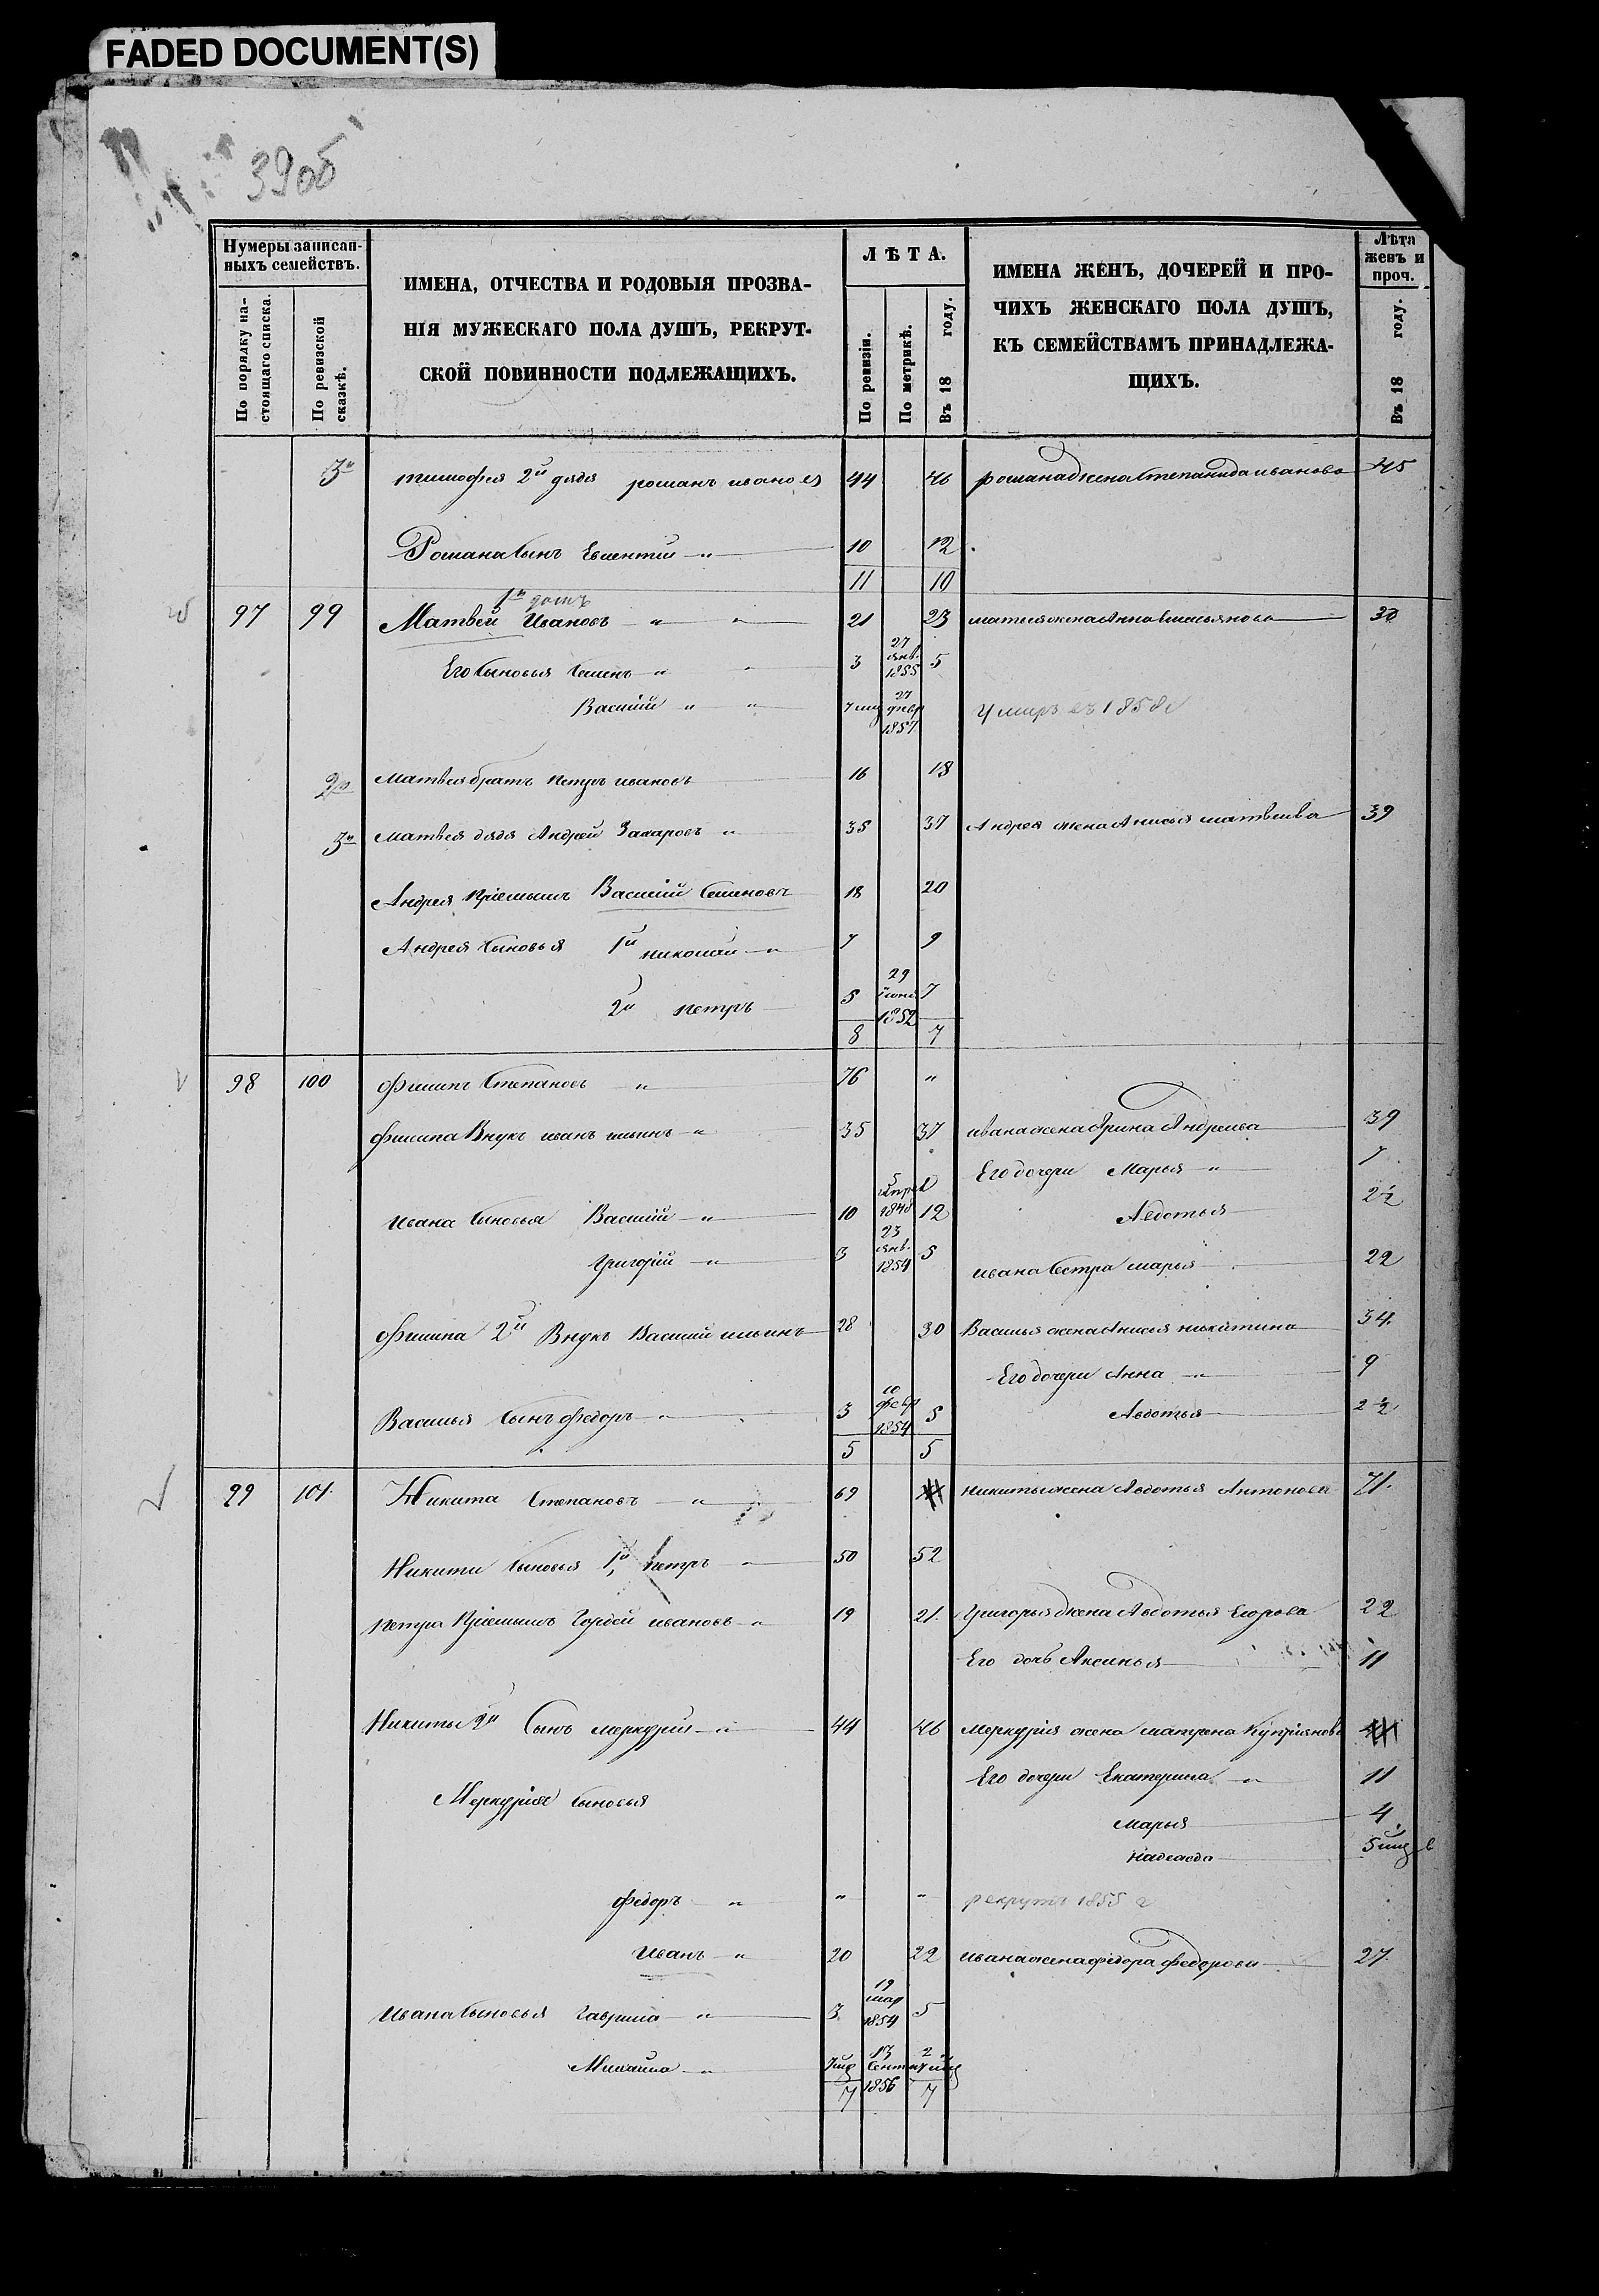 FADED DOCUMENT(S)
39об
Нумеры записан-
ныхъ семействъ.
По порядку на-
стоящаго списка.
По ревизской
сказкѣ.
ИМЕНА, ОТЧЕСТВА И РОДОВЫЯ ПРОЗВА-
НІЯ МУЖЕСКАГО ПОЛА ДУШЪ, РЕКРУТ-
СКОЙ ПОВИННОСТИ ПОДЛЕЖАЩИХЪ.
ЛѢТА.
По ревизіи.
По метрикѣ.
Въ 18 году.
ИМЕНА ЖЕНЪ, ДОЧЕРЕЙ И ПРО-
ЧИХЪ ЖЕНСКАГО ПОЛА ДУШЪ,
КЪ СЕМЕЙСТВАМЪ ПРИНАДЛЕЖА-
ЩИХЪ.
Лѣта
женъ и
проч.
Въ 18 году.
3й тимофея 2й дядя романъ 44 46 романа жена Степанида иванова 45
Романа сынъ 10 12
11 10
1й
97 99 Матвей Ивановъ " " 21 23 матвея жена Анна 30
Его сыновья Семенъ " " 3 27 янв. 1855 5
Василій " " 7 мц 27 1857 Умиръ въ 1858
2й матвея братъ петръ ивановъ 16 18
3й матвея дядя Андрей Захаровъ " 35 37 Андрея жена Анисья матвеива 39
Андрея пріемышъ Василій Семеновъ 18 20
Андрея сыновья 1й николай " 7 9
2й петръ 5 29 июня 1852 7
8 7
98 100 филипъ Степановъ " 76 "
филипа Внукъ иванъ ильинъ " 35 37 ивана жена Арина Андреива 39
Его дочери Марья " 7
ивана сыновья Василій " 10 5 1848 12 Авдотья 2½
Григорій " 3 23 янв. 1854 5 ивана сестра марья 22
филипа 2й Внукъ Василий ильинъ 28 30 Василья жена Анисья никитина 34.
Его дочери Анна " 9
Васильа сынъ федоръ " 3 10 февр 1854 5 Авдотья 2½
5 5
99 101 Никита Степановъ " 69 никиты жена Авдотья Антонова 71.
Никиты сыновья 1й петръ " 50 52
петра Пріемышъ ивановъ " 19 21. Григорья жена Авдотья Егорова 22
Его дочь Аксинья 11
Никиты 2й Сынъ меркурій " 44 46 Меркурія жена матрена Купріянова
Его дочери Екатерина " 11
Меркурія сыновья
марья 4
надежда 5 мцв
федоръ " " " рекрутъ 1855 г
Иванъ " 20 22 ивана жена федора федорова 27.
Ивана сыновья гаврила " 3 19 мар 1854 5
Михаила " 13 Сент 1856 2
7 7